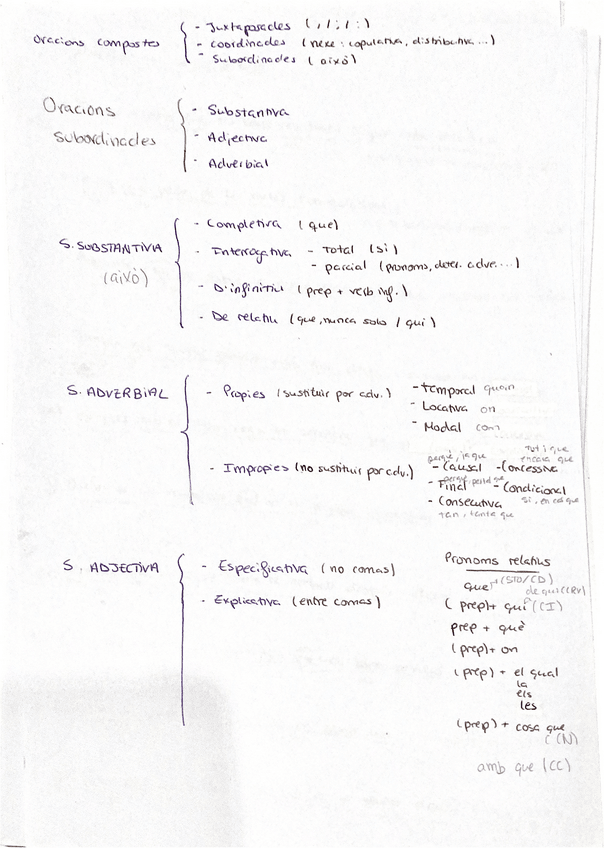 Oracions compostes
- Juxtaposades ( , / ; / : )
- coordinades (nexe: copulativa, distributiva...)
- Subordinades (això)
Oracions
subordinades
- Substantiva
- Adjectiva
- Adverbial
S. SUBSTANTIVA
(això)
- Completiva (que)
- Interrogativa - Total (si)
- parcial (pronoms, deter. adve...)
- D'infinitiu (prep + verb inf.)
- De relatiu (que, nunca solo / qui)
S. ADVERBIAL
- Pròpies (sustituir por adv.)
- Temporal quan
- Locativa on
- Modal com
- Impropies (no sustituir por adv.)
perquè, ja que
tot i que
encara que
- Causal - Concessiva
perquè, per tal que
- Final - Condicional
si, en cas que
- Consecutiva
tan, tante que
S. ADJECTIVA
- Especificativa (no comas)
- Explicativa (entre comas)
Pronoms relatius
que (STO/CD)
de qui (CRV)
(prep)+ qui (CI)
prep + què
(prep)+ on
(prep) + el qual
la
els
les
(prep) + cosa que
(CN)
amb que (CC)